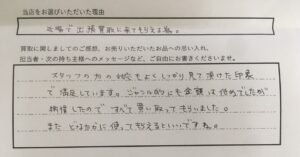 当店をお選びいただいた理由
出張買取に来てもらえる為。
買取に関しましてのご感想、お売りいただいたお品への思い入れ、
担当者・次の持ち主様へのメッセージなど、ご自由にお書きくださいませ。
スタッフの方の対応もよくしっかり見て頂けた印象
で満足しています。ジャンル的にも金額は低めでしたが
納得したのですべて買い取ってもらいました。
また どなたかに使ってもらえるといいですね。